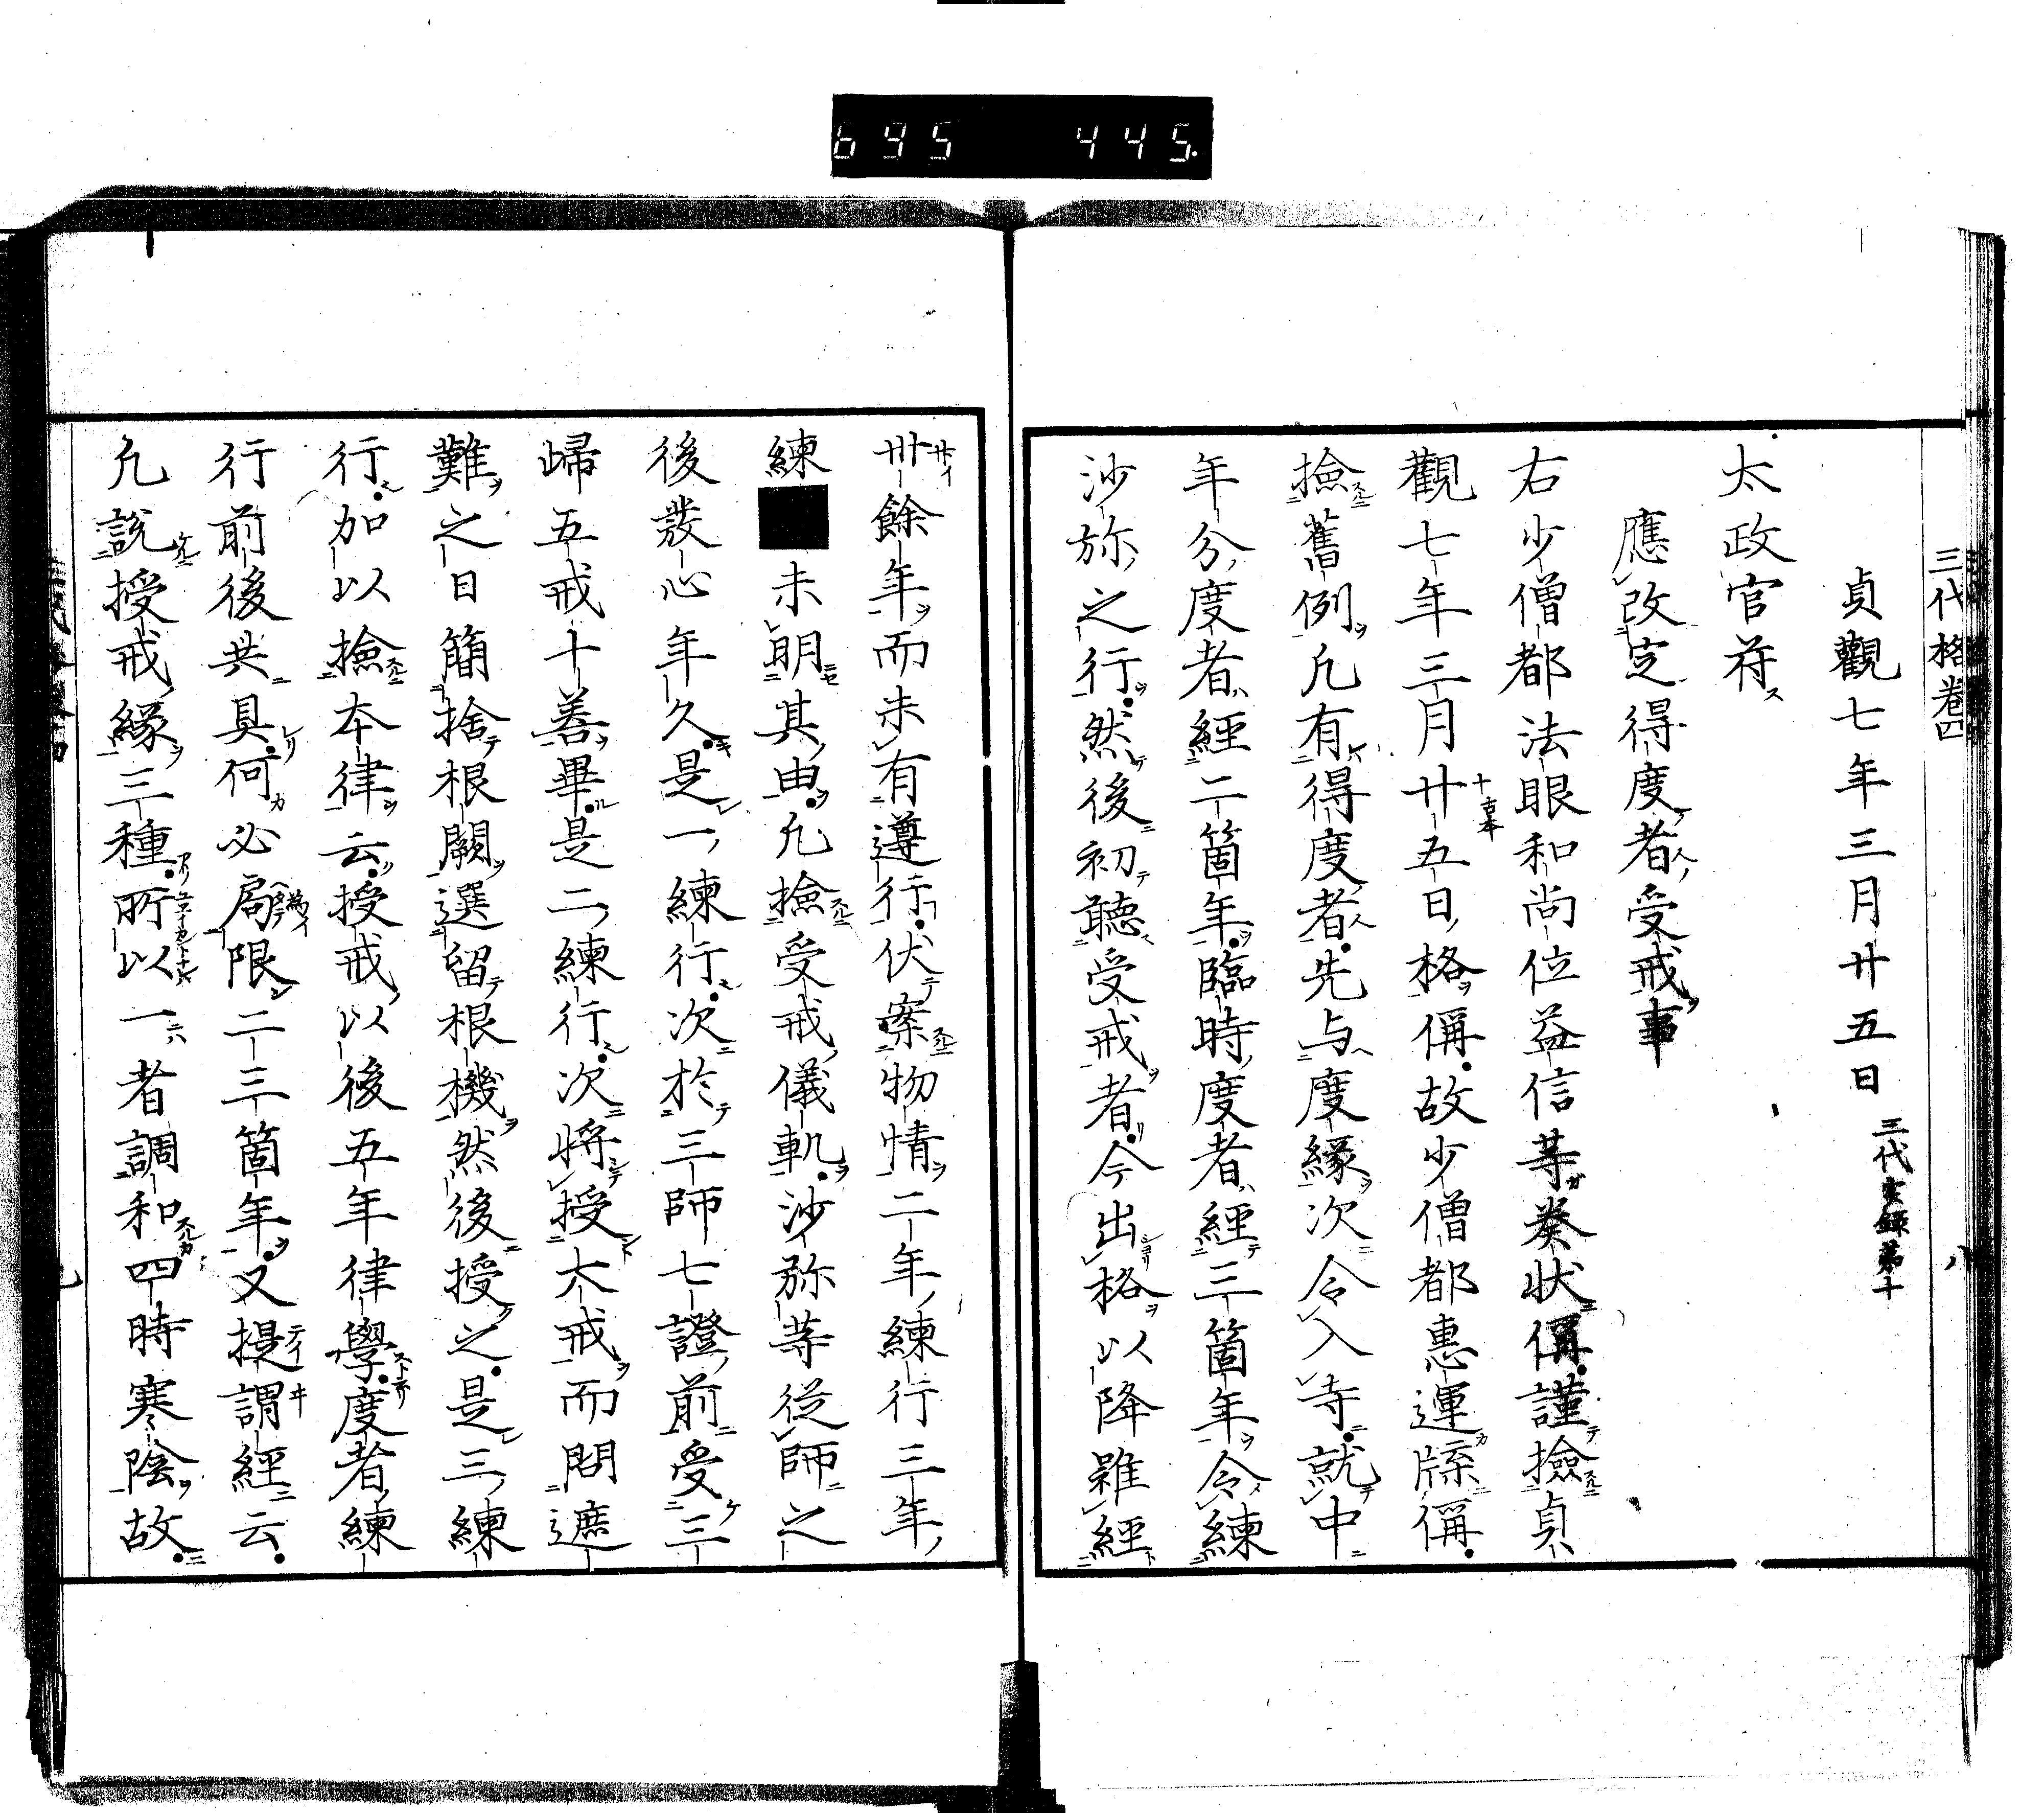 695 445
三代格卷四
貞觀七年三月廿五日 三代実録第十
太政官符
應改定得度者受戒事
右少僧都法眼和尚位益信等奏狀偁謹撿貞
觀七年三月廿五日格偁故少僧都惠運牒偁
撿舊例凡有得度者先与度緣次令入寺就中
年分度者經二箇年臨時度者經三箇年令練
沙弥之行然後初聽受戒者今出格以降雖經
卅餘年而未有遵行伏案物情二年練行三年
練 未明其由凡撿受戒儀軌沙弥等從師之
後發心年久是一練行次於三師七證前受三
歸五戒十善畢是二練行次將授大戒而問遮
難之日簡捨根闕選留根機然後授之是三練
行加以撿本律云授戒以後五年律學度者練
行前後共具何必局限二三箇年又提謂經云
凡說授戒緣三種所以一者調和四時寒陰故